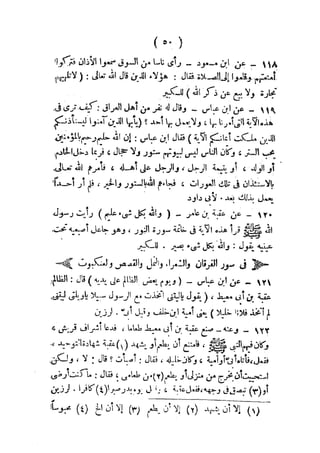 ( ٥٠ )
١١٨ – عن ابن مسعود – رأى ناسا من السوق سمعوا الأذان فتركوا
أمتعتهم وقاموا إلى الصلاة فقال : هؤلاء الذين قال الله تعالى : ( لا تلهيهم
تجارة ولا بيع عن ذكر الله ) للكبير
١١٩ – عن ابن عباس – وقال له نفر من أهل العراق : كيف ترى فى
هذه الآية التى أمرنا بها ، ولا يعمل بها أحد ؟ (يأيها الذين آمنوا ليستأذنكم
الذين ملكت أيمانكم الآية ) فقال ابن عباس : إن الله حليم رحيم بالمؤمنين
يحب الستر ، وكان الناس ليس لبيوتهم ستور ولا حجال ، فربما دخل الخادم
أو الولد ، أو يتيمة الرجل ، والرجل على أهله ، فأمرهم الله تعالى
بالاستئذان فى تلك العورات ، فجاءهم الله بالستور والخير ، فلم أر أحداً
يعمل بذلك بعد . لأبى داود
١٢٠ – عن عقبة بن عامر – ( والله بكل شىء عليم ) رأيت رسول
الله ﷺ قرأ هذه الآية فى خاتمة سورة النور ، وهو جاعل أصبعيه تحت
عينيه يقول : والله بكل شىء بصير . للكبير
فى سور الفرقان والشعراء والنمل والقصص والعنكبوت
١٢١ – عن ابن عباس – ( ويوم يعض الظالم على يديه ) قال : الظالم
عقبة بن أبى معيط ، ( يقول ياليتنى اتخذت مع الرسول سبيلا ياويلتى ليتنى
لم أتخذ فلانا خليلا ) يعنى أمية ابن خلف وقيل أبىّ . لرزين
١٢٢ – وعنه – صنع عقبة بن أبى معيط طعاما ، فدعا أشراف قريش ،
وكان فيهم النبى ﷺ ، فامتنع أن يطعم أو يشهد (١) عقبة شهادة التوحيد ،
ففعل ، فأتاه أبىّ أو أمية ، وكان خليله ، فقال : أصبأت ؟ قال : لا ، ولكن
استحييت أن يخرج من منزلى أو يطعم (٢) من طعامى ؛ فقال : ما كنت أرضى
أو (٣) تبصق فى وجهه ، ففعل عقبة ، يوم بدر صبرا (٤) كافرا . لرزين
(١) إلا أن يشهد (٢) إلا أن يطعم (٣) إلا أن الخ (٤) محبوساً